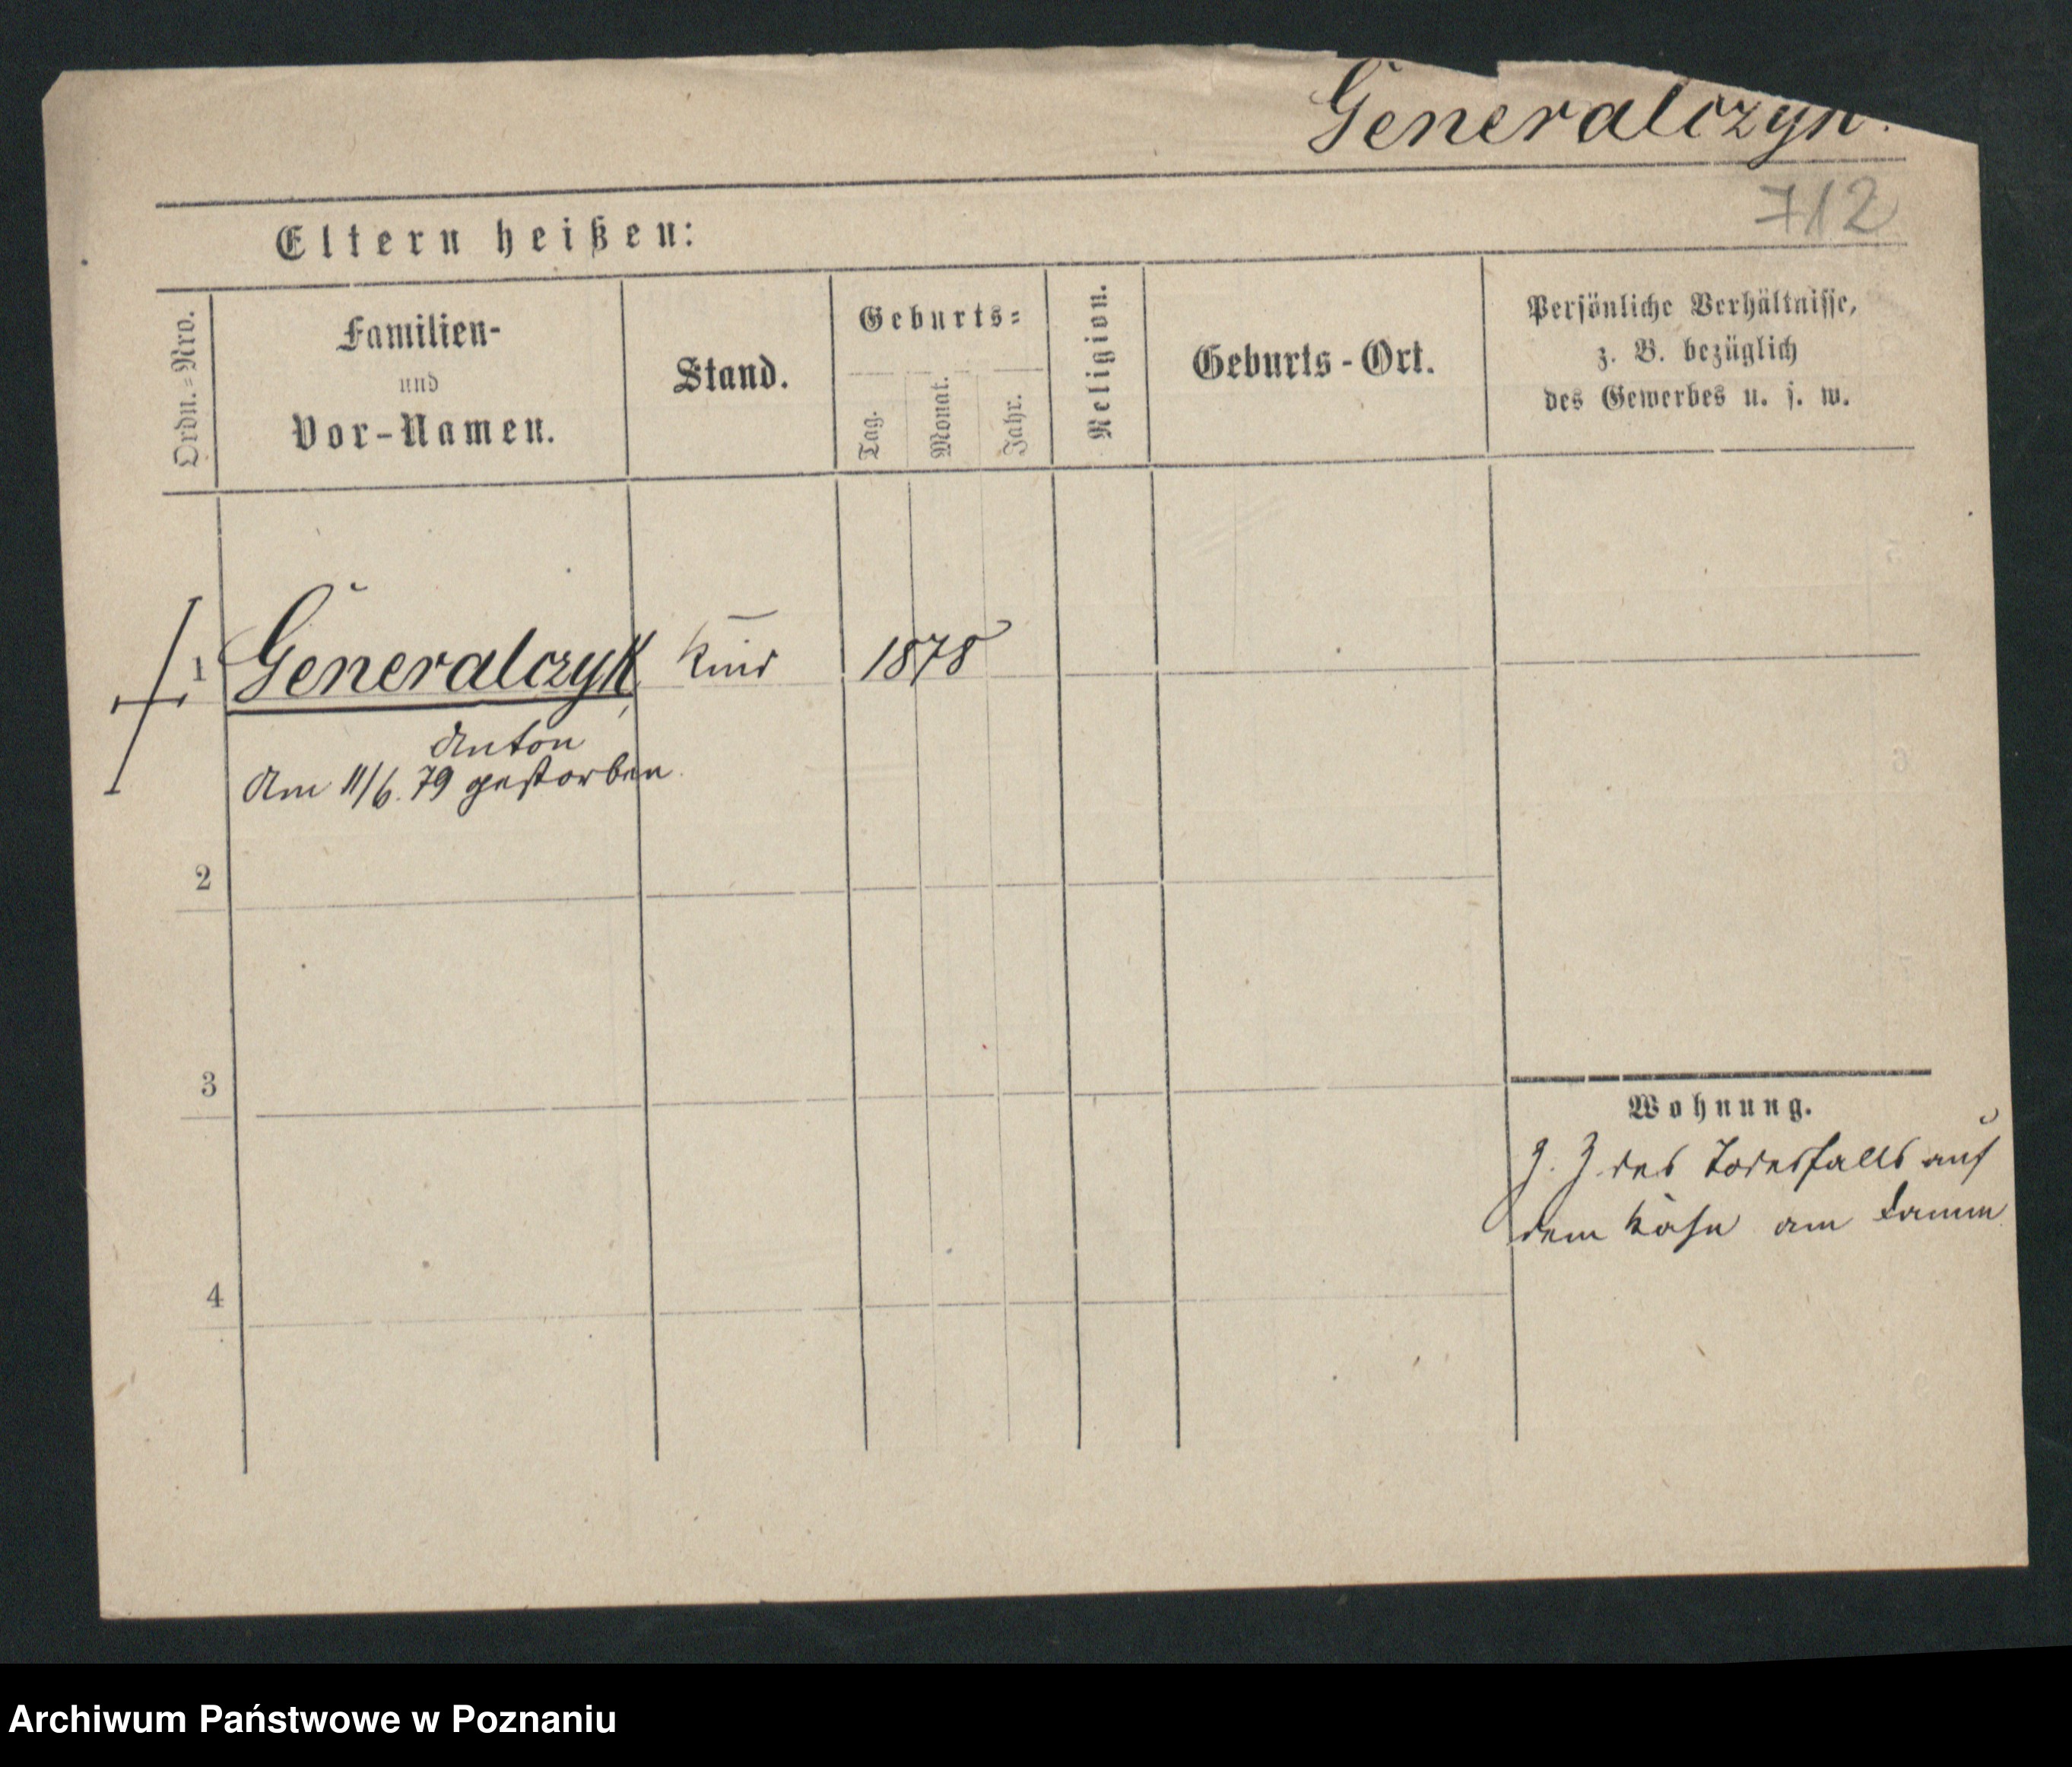 Generalczyk.
712
Eltern heißen:
Ordn.=Nro.
Familien-
und
Vor-Namen.
Stand.
Geburts=
Tag.
Monat.
Jahr.
Religion.
Geburts-Ort.
Persönliche Verhältnisse,
z. B. bezüglich
des Gewerbes u. s. w.
1 Generalczyk, Kind 1878
Anton
Am 11/6. 79 gestorben.
2
3
4
Wohnung.
z. Z. des Todesfalls auf
dem Kahn am Damm
Archiwum Państwowe w Poznaniu